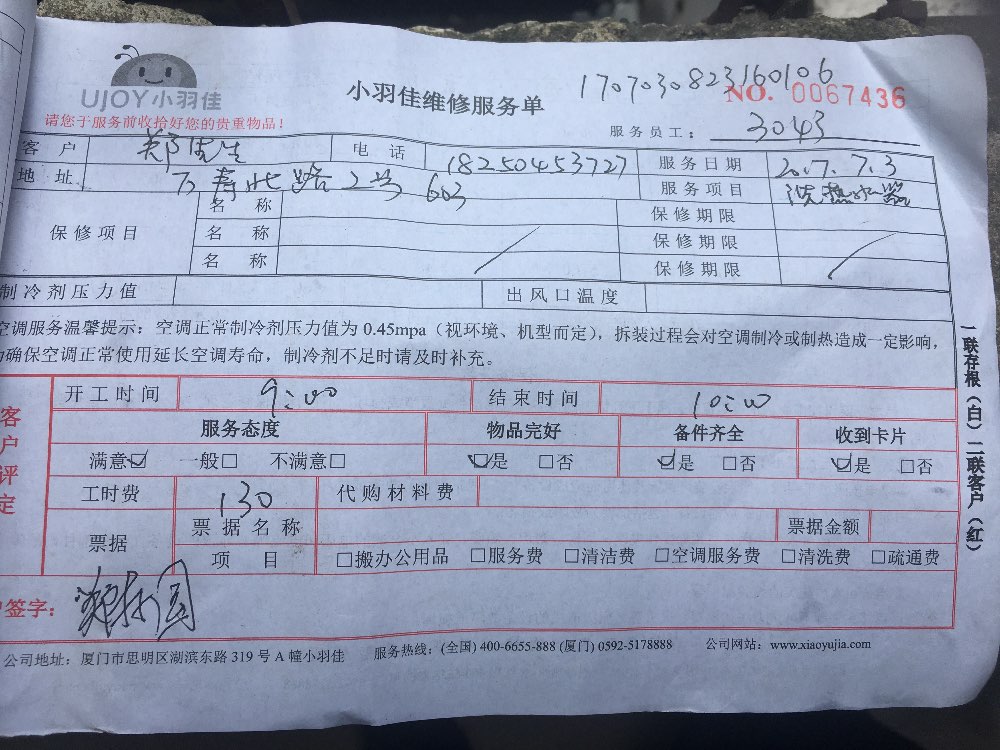 UJOY小羽佳
小羽佳维修服务单
170703082316​0106
NO. 0067436
请您于服务前收拾好您的贵重物品!
服务员工: 3043
客户 郑先生 电话 18250453727 服务日期 2017.7.3
地址 万寿北路2号603 服务项目 洗热水器
保修项目 名称 保修期限
名称 保修期限
名称 保修期限
制冷剂压力值 出风口温度
空调服务温馨提示:空调正常制冷剂压力值为0.45mpa(视环境、机型而定),拆装过程会对空调制冷或制热造成一定影响,
为确保空调正常使用延长空调寿命,制冷剂不足时请及时补充。
客户评定
开工时间 9:00 结束时间 10:00
服务态度 物品完好 备件齐全 收到卡片
满意☑ 一般□ 不满意□ ☑是 □否 ☑是 □否 ☑是 □否
工时费 130 代购材料费
票据 票据名称 票据金额
项目 □搬办公用品 □服务费 □清洁费 □空调服务费 □清洗费 □疏通费
户签字:
公司地址:厦门市思明区湖滨东路319号A幢小羽佳 服务热线:(全国) 400-6655-888 (厦门) 0592-5178888 公司网站:www.xiaoyujia.com
一联存根(白) 二联客户(红)